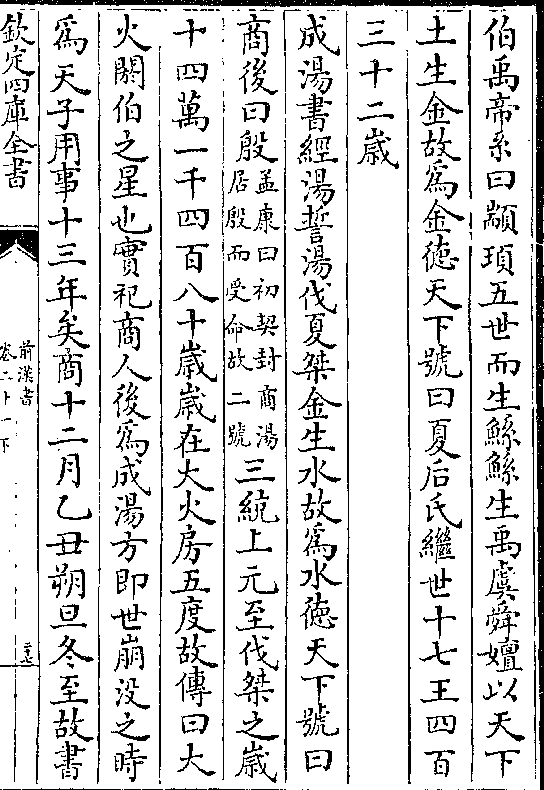 伯禹帝系曰顓頊五世而生鯀鯀生禹虞舜嬗以天下
土生金故為金徳天下號曰夏后氏繼世十七王四百
三十二歳
成湯書經湯誓湯伐夏桀金生水故為水徳天下號曰
商後曰殷孟康曰初契封商湯居殷而受命故二號三統上元至伐桀之歳
十四萬一千四百八十歳歳在大火房五度故傳曰大
火閼伯之星也實祀商人後為成湯方即世崩没之時
為天子用事十三年矣商十二月乙丑朔旦冬至故書
欽定四庫全書
前漢書
卷二十一下